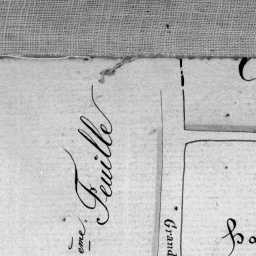 eme. Feuille
Grand